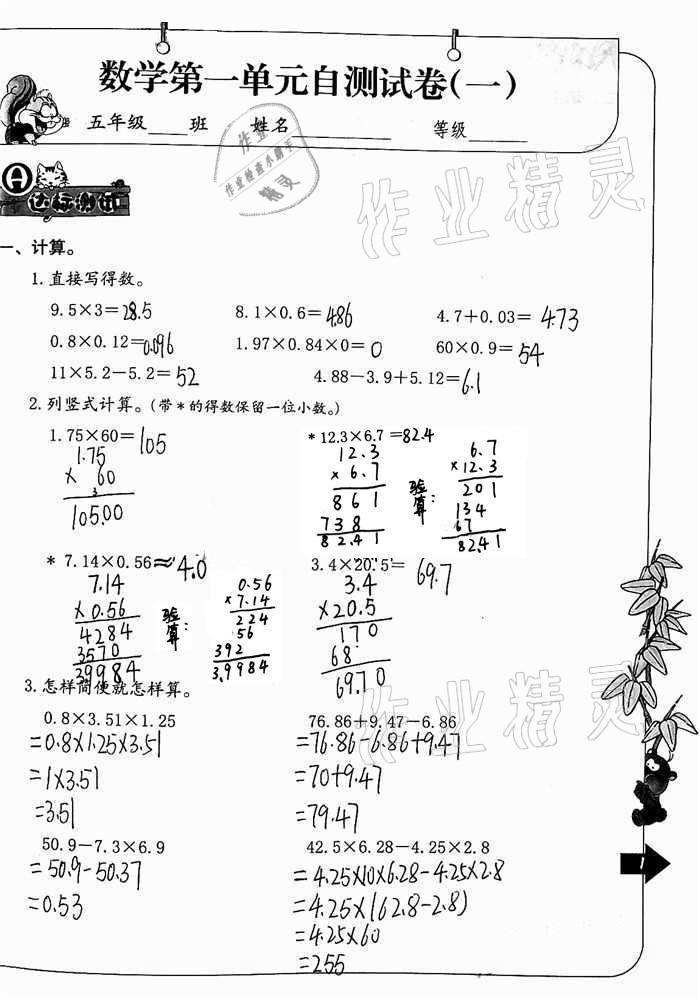 数学第一单元自测试卷(一)
五年级____班 姓名________ 等级____
A
达标测试
一、计算。
1.直接写得数。
9.5×3=28.5 8.1×0.6=4.86 4.7+0.03=4.73
0.8×0.12=0.096 1.97×0.84×0=0 60×0.9=54
11×5.2-5.2=52 4.88-3.9+5.12=6.1
2.列竖式计算。(带*的得数保留一位小数。)
1.75×60=105 *12.3×6.7=82.4
1.75
× 60
3
105.00
12.3
×6.7
861
738
82.41
验算:
6.7
×12.3
201
134
67
82.41
*7.14×0.56≈4.0 3.4×20.5=69.7
7.14
×0.56
4284
3570
39984
验算:
0.56
×7.14
224
56
392
3.9984
3.4
×20.5
170
68
69.70
3.怎样简便就怎样算。
0.8×3.51×1.25 76.86+9.47-6.86
=0.8×1.25×3.51 =76.86-6.86+9.47
=1×3.51 =70+9.47
=3.51 =79.47
50.9-7.3×6.9 42.5×6.28-4.25×2.8
=50.9-50.37 =4.25×10×6.28-4.25×2.8
=0.53 =4.25×(62.8-2.8)
=4.25×60
=255
1
作业精灵
作业精灵
作业
作业检查小助手
精灵